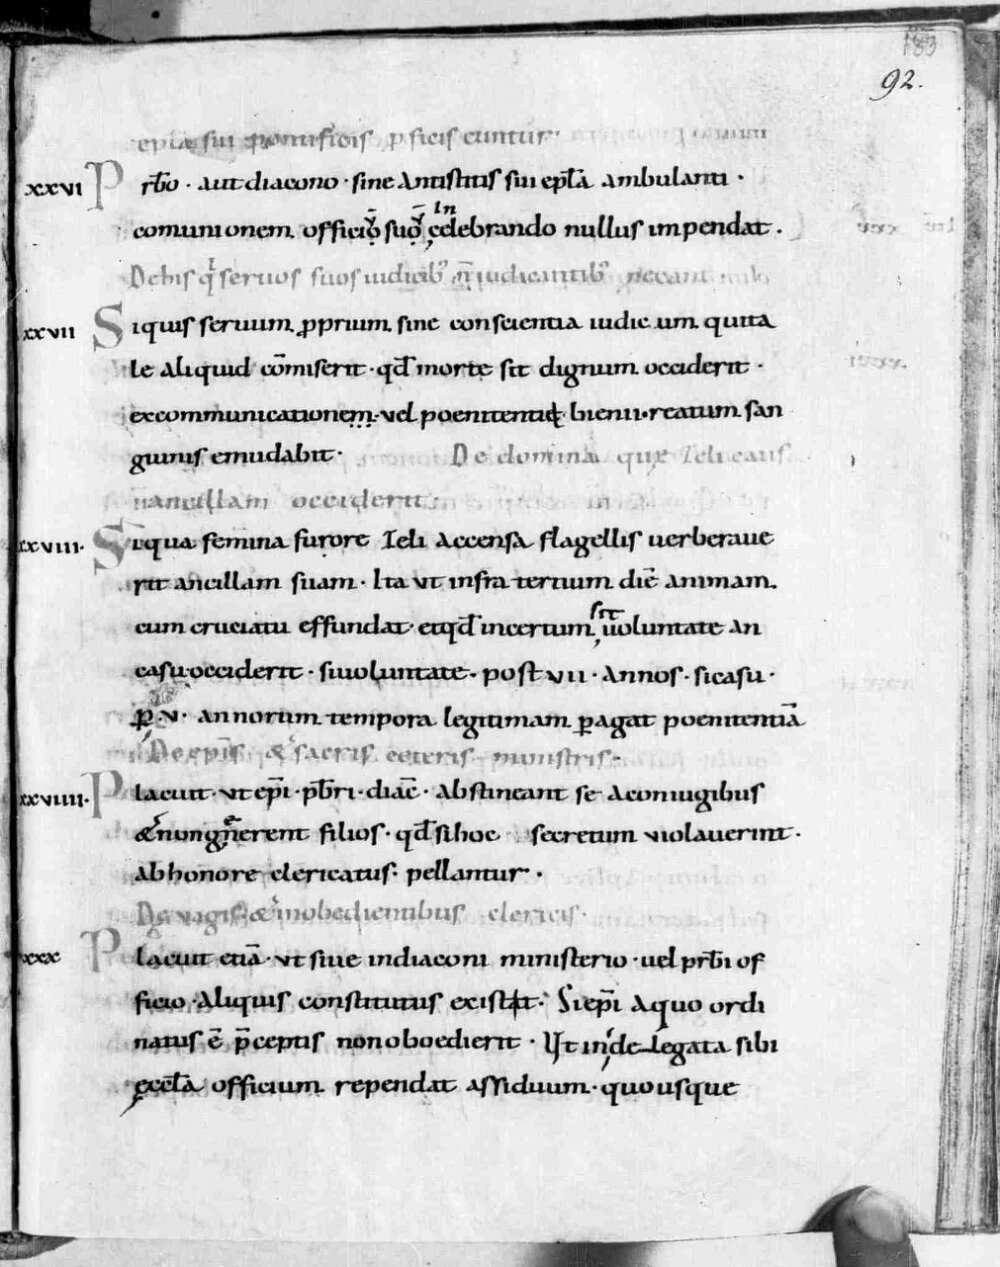 92.
eplā sui pontificis p̱ficiscuntur·
xxvi Prb̄o · aut diacono · sine antistitis sui epl̄a ambulanti ·
comunionem officiọ suọ in celebrando nullus impendat .
De his q̇ seruos suos iudicib; n̄ iudicantib; necant
xxvii Siquis seruum p̱prium sine conscientia iudicum qui ta
le aliquid com̄iserit · qd̄ morte sit dignum occiderit ·
excommunicationem · uel poenitentię bienii · reatum san
guinis emudabit · De domina que zeli caus
ancillam occiderit ·
xxviii · Siqua femina furore zeli accensa flagellis uerberaue
rit ancillam suam · Ita ut infra tertium diē animam
cum cruciatu effundat · et qd̄ incertum sit uoluntate an
casu occiderit · si uoluntate · post vii · annos · si casu ·
p̱ · v · annorum tempora legitimam p̱agat poenitentiā
De ep̄is & sacris ceteris ministris ·
xxviiii · Placuit · ut ep̄i · prb̄ri · diac̄ · abstineant se a coniugibus
& non generent filios · qd̄ si hoc secretum violauerint ·
ab honore clericatus · pellantur ·
De vagis & inobedientibus clericis ·
xxx Placuit etiā · ut siue in diaconi ministerio · uel prb̄i of
ficio · aliquis constitutus existat · Si ep̄i a quo ordi
natus ē p̄ceptis non oboedierit · Ut in delegata sibi
eccl̄a officium rependat assiduum · quo usque